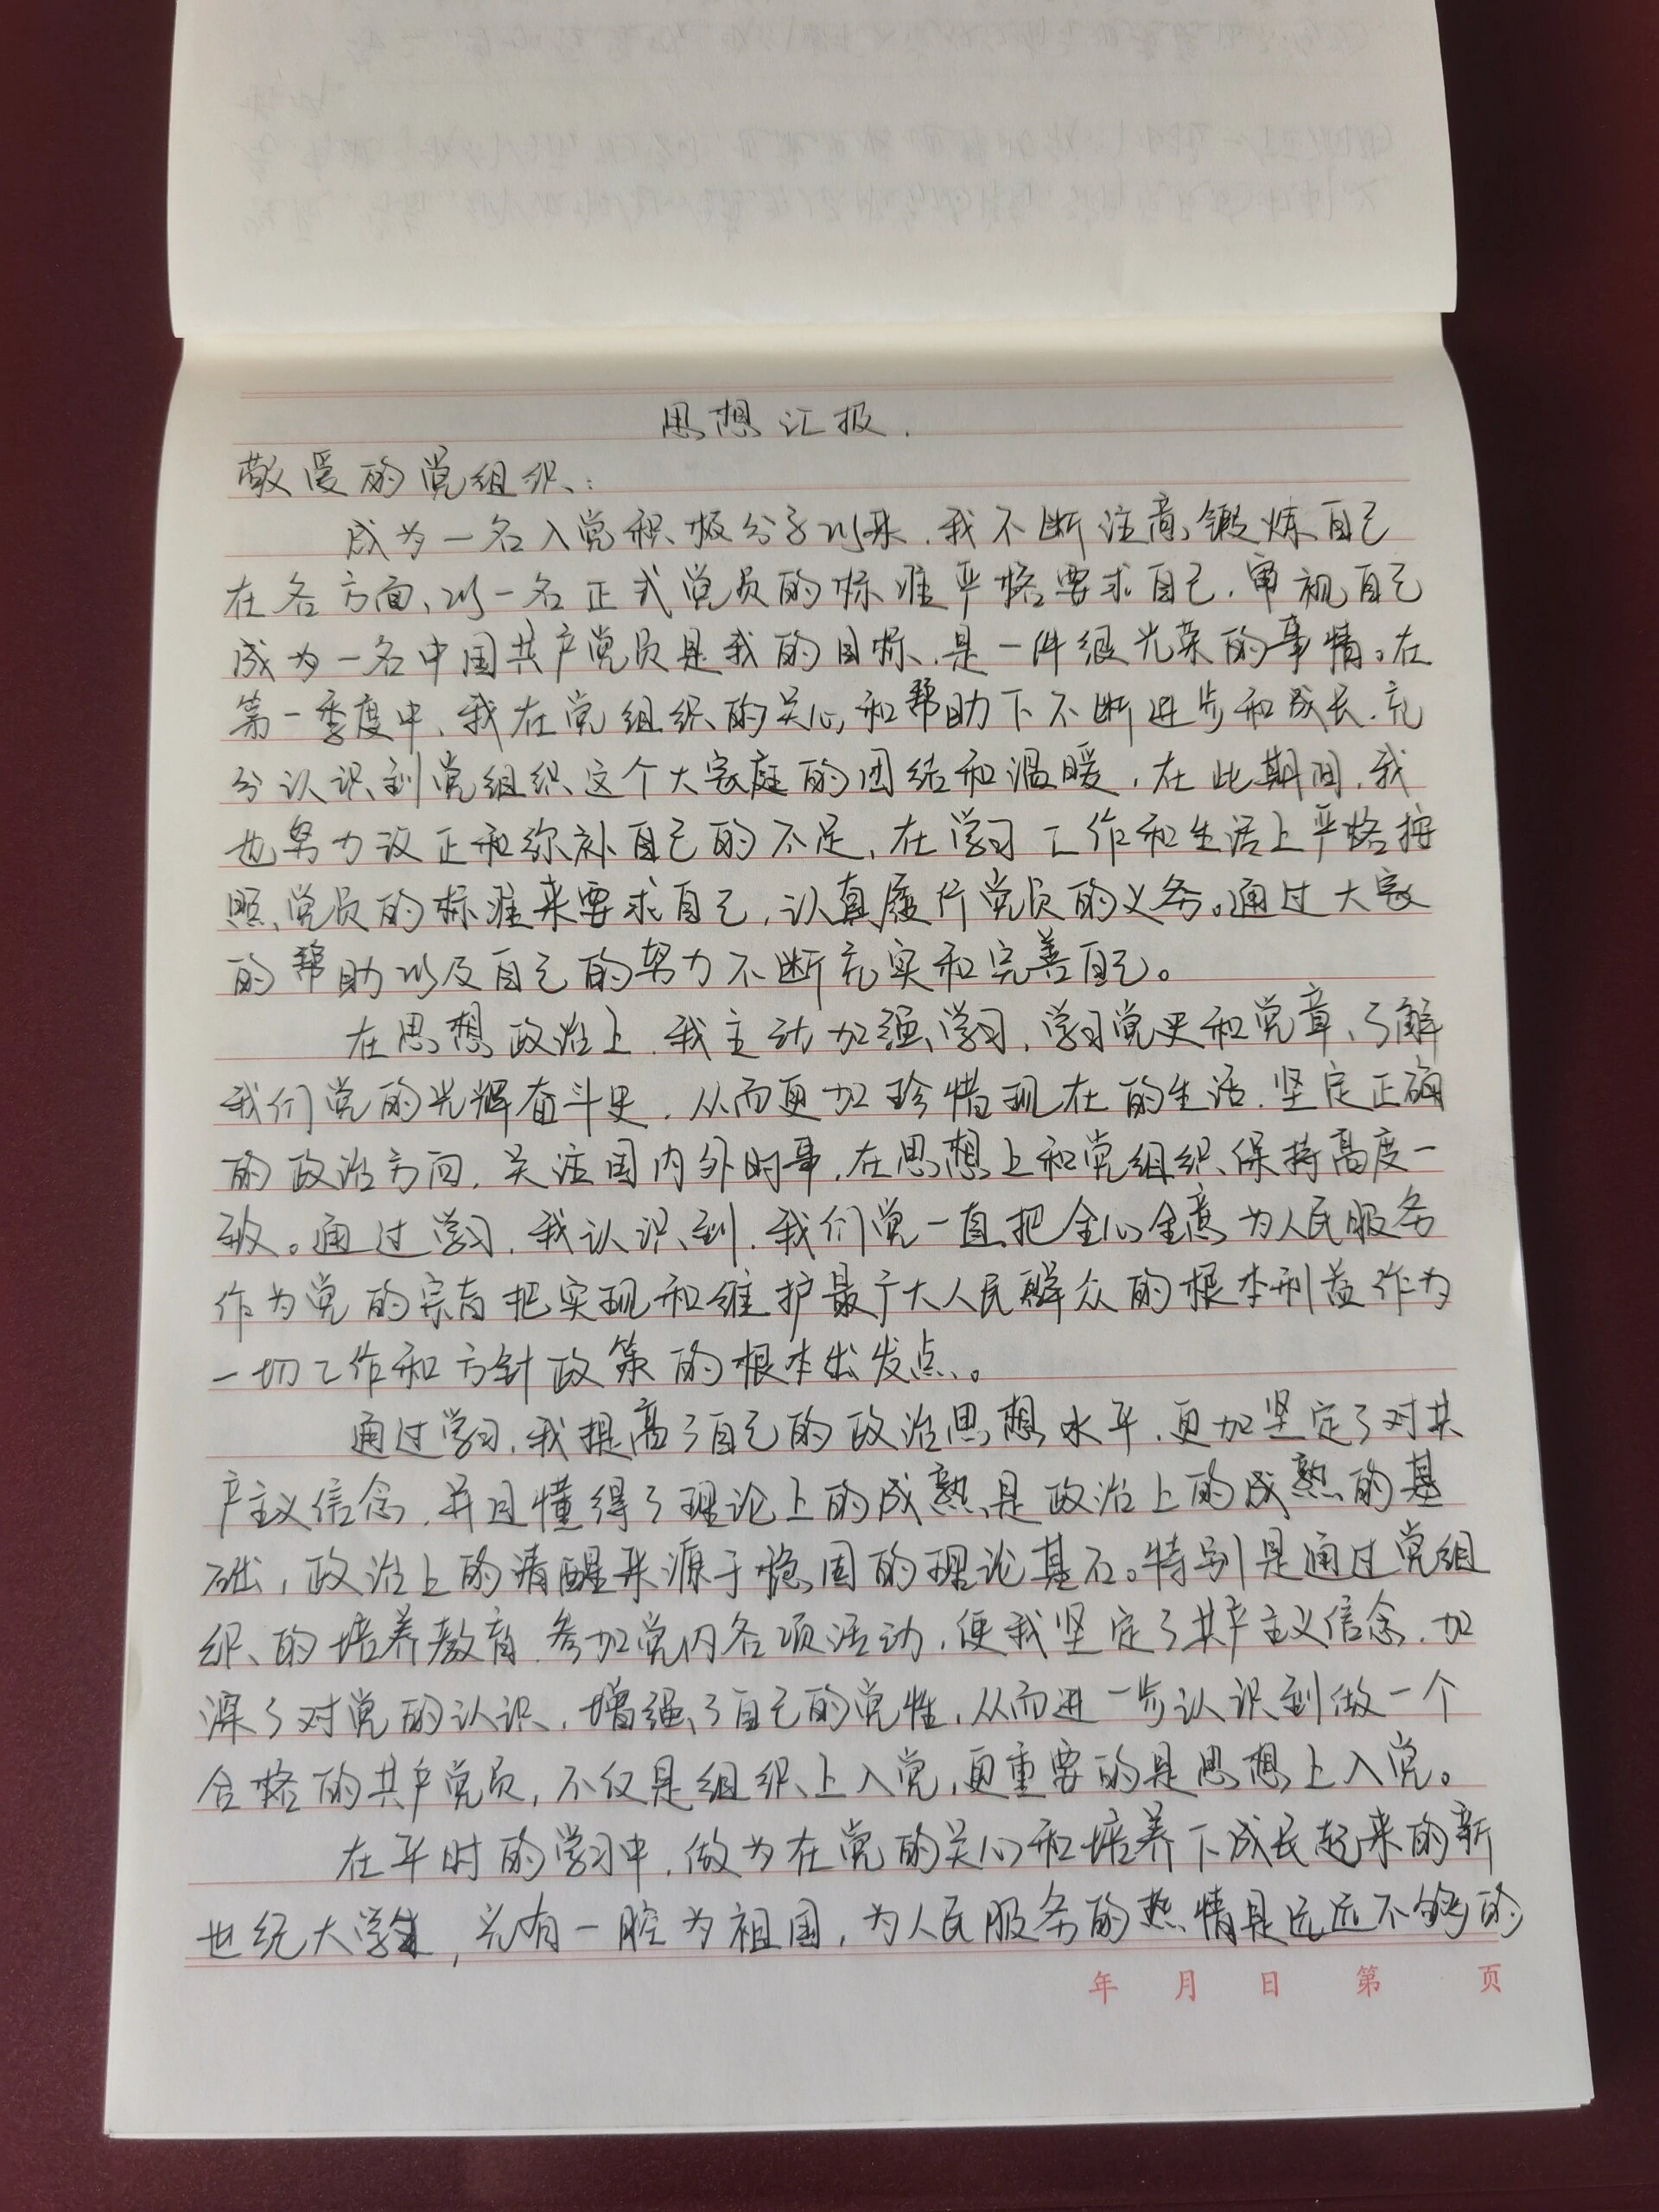 思想汇报.
敬爱的党组织:
成为一名入党积极分子以来,我不断注意锻炼自己
在各方面、以一名正式党员的标准严格要求自己,审视自己
成为一名中国共产党员是我的目标,是一件很光荣的事情。在
第一季度中、我在党组织的关心和帮助下不断进步和成长,充
分认识到党组织这个大家庭的团结和温暖,在此期间,我
也努力改正和弥补自己的不足,在学习工作和生活上严格按
照党员的标准来要求自己,认真履行党员的义务。通过大家
的帮助以及自己的努力不断充实和完善自己。
在思想政治上,我主动加强学习,学习党史和党章、了解
我们党的光辉奋斗史,从而更加珍惜现在的生活,坚定正确
的政治方向,关注国内外时事,在思想上和党组织保持高度一
致。通过学习,我认识到,我们党一直把全心全意为人民服务
作为党的宗旨把实现和维护最广大人民群众的根本利益作为
一切工作和方针政策的根本出发点。
通过学习,我提高了自己的政治思想水平,更加坚定了对共
产主义信念,并且懂得了理论上的成熟是政治上的成熟的基
础,政治上的清醒来源于稳固的理论基石。特别是通过党组
织的培养教育,参加党内各项活动,使我坚定了共产主义信念,加
深了对党的认识,增强了自己的党性,从而进一步认识到做一个
合格的共产党员,不仅是组织上入党,更重要的是思想上入党。
在平时的学习中,做为在党的关心和培养下成长起来的新
世纪大学生,光有一腔为祖国,为人民服务的热情是远远不够的
年 月 日 第 页